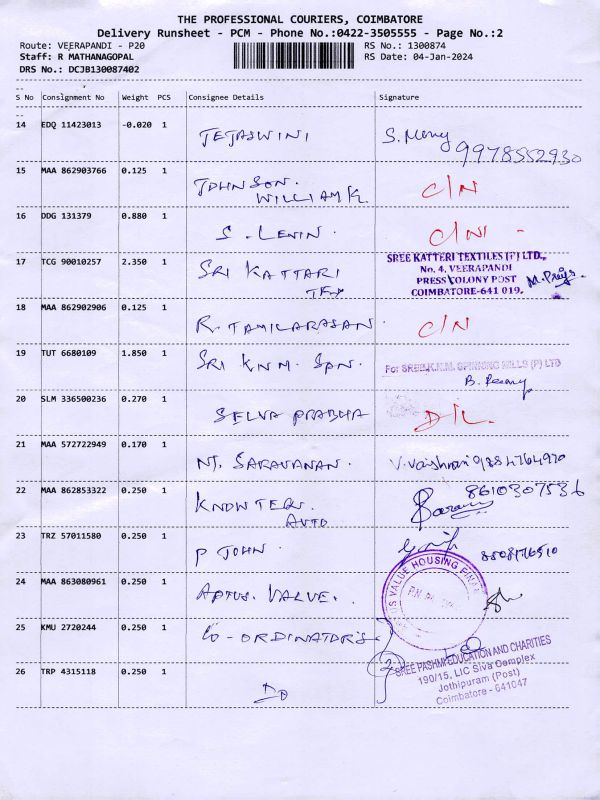 THE PROFESSIONAL COURIERS, COIMBATORE
Delivery Runsheet - PCM - Phone No.:0422-3505555 - Page No.:2
Route: VEERAPANDI - P20 RS No.: 1300874
Staff: R MATHANAGOPAL RS Date: 04-Jan-2024
DRS No.: DCJB130087402
S No Consignment No Weight PCS Consignee Details Signature
14 EDQ 11423013 -0.020 1 TEJASWINI S. 9978552930
15 MAA 862903766 0.125 1 JOHNSON. C/N
WILLIAM K.
16 DDG 131379 0.880 1 S. LENIN. C/N
17 TCG 90010257 2.350 1 SRI KATTARI TEX SREE KATTERI TEXTILES (P) LTD.,
No. 4, VEERAPANDI
PRESS COLONY POST
COIMBATORE-641 019. M. Priya
18 MAA 862902906 0.125 1 R. TAMILARASAN C/N
19 TUT 6680109 1.850 1 SRI KNM. SPN. For SREE K.N.M. SPINNING MILLS (P) LTD
B.
20 SLM 336500236 0.270 1 SELVA PRABHA D/L.
21 MAA 572722949 0.170 1 NT. SARAVANAN. V. Vaishnavi 9884764970
22 MAA 862853322 0.250 1 KNOWTEQ. AUTO 8610307536
23 TRZ 57011580 0.250 1 P JOHN.
24 MAA 863080961 0.250 1 APTUS. VALVE. VALUE HOUSING
25 KMU 2720244 0.250 1 CO-ORDINATOR'S
26 TRP 4315118 0.250 1 DO
SREE PASHMI EDUCATION AND CHARITIES
190/15, LIC Siva Complex
Jothipuram (Post)
Coimbatore - 641047